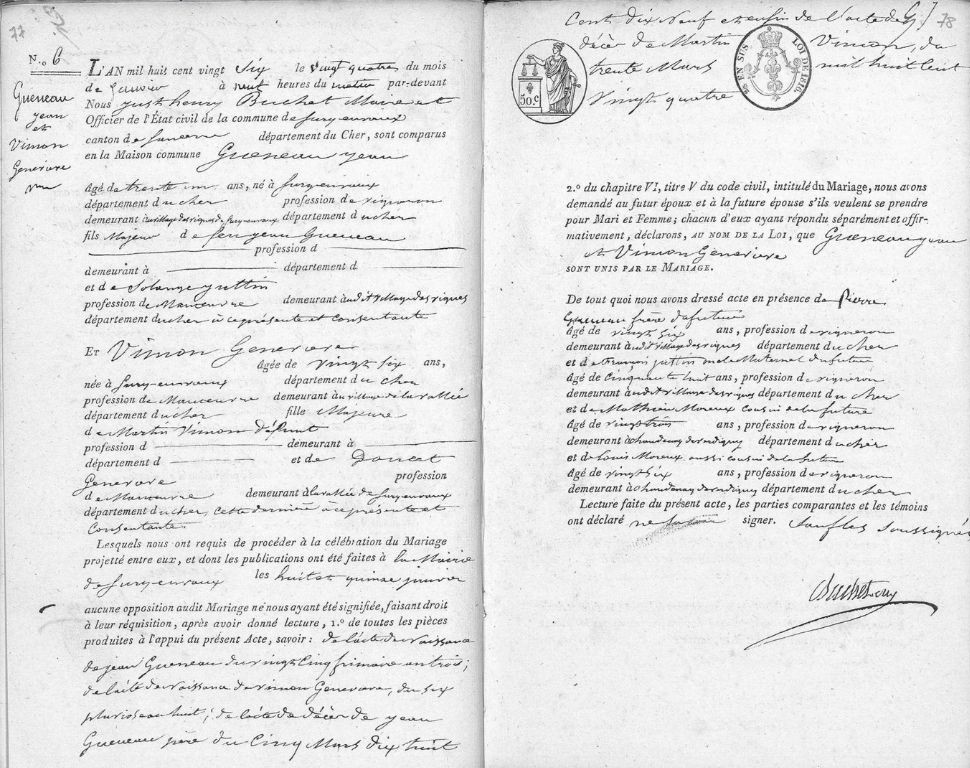 77
N.o 6
Gueneau
jean
et
Vimon
Genevieve
L'AN mil huit cent vingt Six le vingt quatre du mois
de Janvier à huit heures du matin par-devant
Nous just henry Buchet Maire et
Officier de l'État civil de la commune de Sury en vaux
canton de Sancerre département du Cher, sont comparus
en la Maison commune Gueneau jean
âgé de trente un ans, né à Sury en vaux
département du cher profession de vigneron
demeurant au village des rigues de Sury en vaux département du cher
fils Majeur de feu jean Gueneau
profession d
demeurant à département d
et de Solange juttin
profession de Manœuvre demeurant audit village des rigues
département du cher à ce présente et consentante
ET Vimon Genevieve
âgée de vingt six ans,
née à Sury en vaux département du cher
profession de Manœuvre demeurant au village de la vallée
département du cher fille Majeure
de Martin Vimon défunt
profession d demeurant à
département d et de Doucet
Genevieve profession
de Manœuvre demeurant à la vallée de Sury en vaux
département du cher, cette dernière à ce présente et
Consentante
Lesquels nous ont requis de procéder à la célébration du Mariage
projetté entre eux, et dont les publications ont été faites à la Mairie
de Sury en vaux les huit et quinze janvier
aucune opposition audit Mariage ne nous ayant été signifiée, faisant droit
à leur réquisition, après avoir donné lecture, 1.o de toutes les pièces
produites à l'appui du présent Acte, savoir: de l'acte de Naissance
de jean Gueneau du vingt Cinq frimaire an trois;
de l'acte de Naissance de vimon Genevieve, du six
pluviose an huit; de l'acte de décès de jean
Gueneau père du Cinq Mars dix huit
78
Cent dix Neuf et enfin de l'acte de
décès de Martin Vimon, du
trente Mars mil huit Cent
vingt quatre
50.C
EN SUS
LOI DE 1816
2.o du chapitre VI, titre V du code civil, intitulé du Mariage, nous avons
demandé au futur époux et à la future épouse s'ils veulent se prendre
pour Mari et Femme; chacun d'eux ayant répondu séparément et affir-
mativement, déclarons, AU NOM DE LA LOI, que Gueneau jean
et Vimon Genevieve
SONT UNIS PAR LE MARIAGE.
De tout quoi nous avons dressé acte en présence de Pierre
Gueneau frère du futur
âgé de vingt six ans, profession de vigneron
demeurant audit village des rigues département du cher
et de François juttin oncle Maternel du futur
âgé de Cinquante huit ans, profession de vigneron
demeurant audit village des rigues département du cher
et de Mathieu Moreux cousin de la future
âgé de vingt trois ans, profession de vigneron
demeurant à chaudoux de verdigny département du cher
et de Louis Moreux aussi cousin de la future
âgé de vingt six ans, profession de vigneron
demeurant à chaudoux de verdigny département du cher
Lecture faite du présent acte, les parties comparantes et les témoins
ont déclaré ne savoir signer. Sauf les soussignés